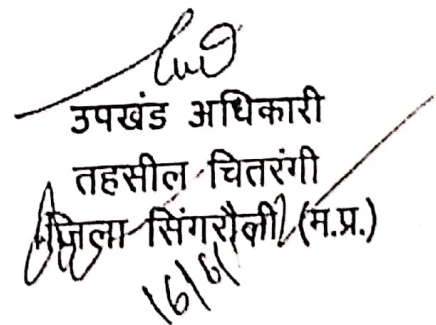 उपखंड अधिकारी
तहसील चितरंगी
जिला सिंगरौली (म.प्र.)
16/6/